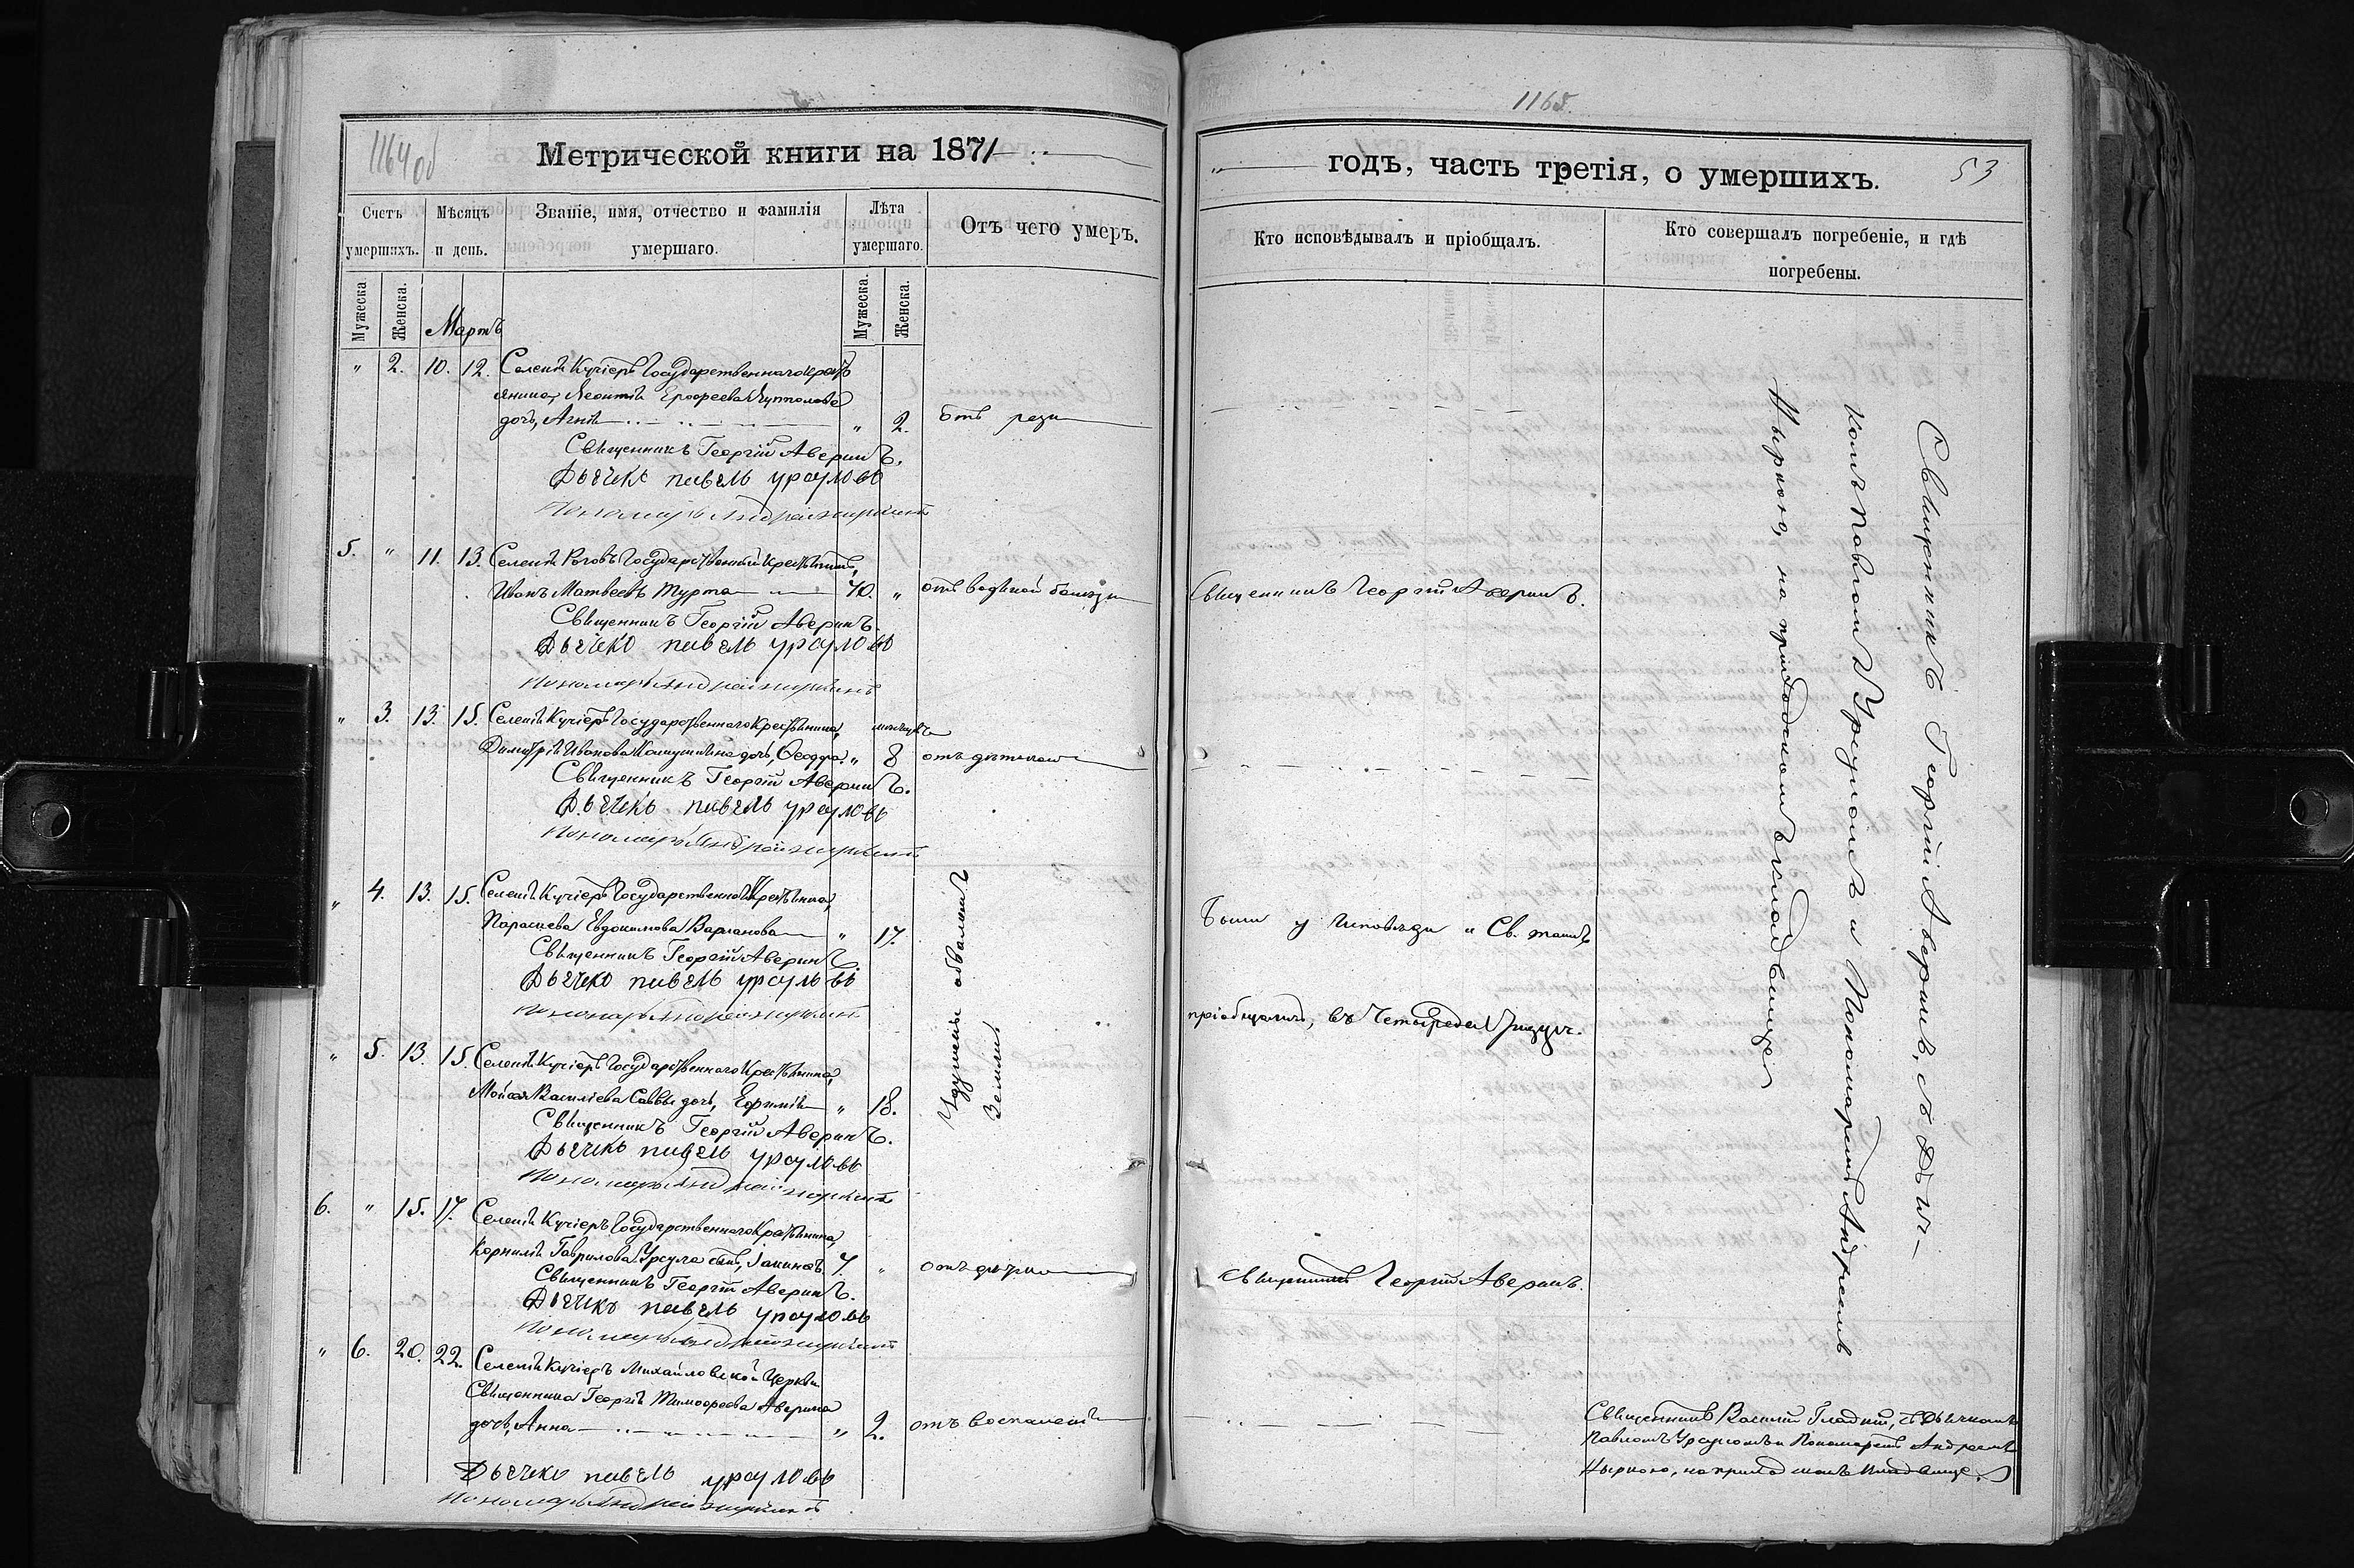 1164об
Метрической книги на 1871
Счетъ умершихъ.
Мѣсяцъ и день.
Званіе, имя, отчество и фамилія умершаго.
Лѣта умершаго.
Отъ чего умеръ.
Мужеска.
Женска.
Мартъ
Мужеска.
Женска.
" 2. 10. 12. Селенія Кучіеръ Государственнаго крестъ
янина, Леонтія Ерофеева
дочь, Агнія " 2.
Священникъ Георгій Аверинъ.
Дьячекъ Павелъ Урсуловъ
Пономарь Андрей
5. " 11. 13. Селенія Роговъ Государственный Крестьянинъ,
Иванъ Матвеевъ Турта 70. " отъ водяной болезни
Священникъ Георгій Аверинъ.
Дьячекъ Павелъ Урсуловъ
Пономарь Андрей
" 3. 13. 15. Селенія Кучіеръ Государственнаго Крестьянина, месяцевъ
Димитрія Иванова дочь, Феодора. " 8
Священникъ Георгій Аверинъ.
Дьячекъ Павелъ Урсуловъ
Пономарь Андрей
" 4. 13. 15. Селенія Кучіеръ Государственнаго Крестьянина,
Параскева Евдокимова Варланова " 17.
Священникъ Георгій Аверинъ.
Дьячекъ Павелъ Урсуловъ
Пономарь Андрей
" 5. 13. 15. Селенія Кучіеръ Государственнаго Крестьянина,
Мойсея Василіева Саввы дочь, Ефимія " 18.
Священникъ Георгій Аверинъ.
Дьячекъ Павелъ Урсуловъ
Пономарь Андрей
Удушены обваломъ
Земли
6. " 15. 17. Селенія Кучіеръ Государственнаго Крестьянина,
Корнилія Гаврилова Урсула сынъ, Іакинфъ. 7. "
Священникъ Георгій Аверинъ.
Дьячекъ Павелъ Урсуловъ
Пономарь Андрей
" 6. 20. 22. Селенія Кучіеръ Михайловской Церкви
Священника Георгія Тимофеева Аверина
дочь, Анна " 2. отъ воспаленія
Дьячекъ Павелъ Урсуловъ
Пономарь Андрей
1165.
годъ, часть третія, о умершихъ.
53
Кто исповѣдывалъ и пріобщалъ.
Кто совершалъ погребеніе, и гдѣ погребены.
Священникъ Георгій Аверинъ.
Были у Исповѣди и Св. таинъ
пріобщались, въ Четыредесятницу.
Священникъ Георгій Аверинъ.
Священникъ Георгій Аверинъ, съ Дьяч-
комъ Павломъ Урсуломъ и Пономаремъ Андреемъ
Ныркою, на приходскомъ кладбище
Священникъ Василій Гладкій, съ Дьячкомъ
Павломъ Урсуломъ и Пономаремъ Андреемъ
Ныркою, на приходскомъ кладбище.